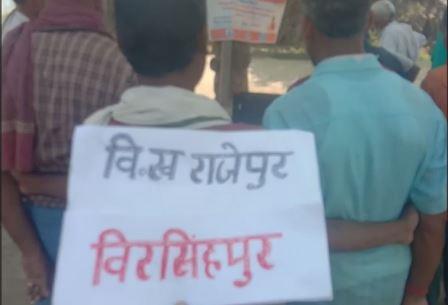 वि.ख राजेपुर
विरसिंहपुर